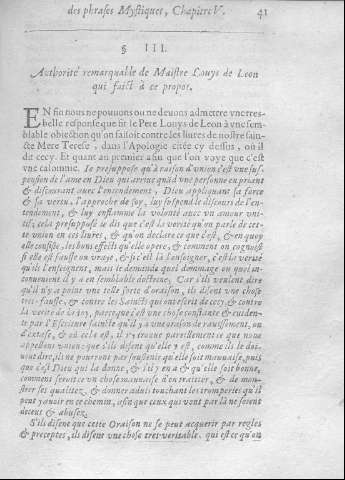 des phrases Mystiques, Chapitre V. 41
§ III.
Authorité remarquable de Maistre Louys de Leon
qui faict à ce propos.
EN fin nous ne pouuons ou ne deuons admettre vne tres-
belle response que fit le Pere Louys de Leon à vne sem-
blable obiection qu'on faisoit contre les liures de nostre sain-
cte Mere Terese, dans l'Apologie citée cy dessus, où il
dit cecy. Et quant au premier afin que l'on voye que c'est
vne calomnie. Ie presuppose qu'à raison d'vnion c'est vne sus-
pension de l'ame en Dieu qui arriue quãd vne personne en priant
& discourant auec l'entendement, Dieu appliquant sa force
& sa vertu, l'approche de soy, luy suspend le discours de l'en-
tendement, & luy enflamme la volonté auec vn amour vni-
tif; cela presupposé ie dis que c'est la verité qu'on parle de cet-
te vnion en ces liures, & qu'on declare ce que c'est, & en quoy
elle consiste, les bons effects qu'elle opere, & comment on cognoist
si elle est fausse ou vraye, & si c'est là l'enseigner, c'est la verité
qu'ils l'enseignent, mais ie demande quel dommage ou quel in-
conuenient il y a en semblable doctrine, Car s'ils veulent dire
qu'il n'y a point vne telle sorte d'oraison, ils disent vne chose
tres-fausse, & contre les Saincts qui ont escrit de cecy & contre
la verité de la foy, parce que c'est vne chose constante & euiden-
te par l'Escriture saincte qu'il y a vne oraison de rauissement, ou
d'extase, & où cela est, il s'y trouue pareillement ce que nous
appellons vnion: que s'ils disent qu'elle y est, comme ils le doi-
uent dire, ils ne pourront pas soustenir qu'elle soit mauuaise, puis
que c'est Dieu qui la donne, & s'il y en a & qu'elle soit bonne,
comment seroit ce vn chose mauuaise d'en traitter, & de mon-
strer ses qualitez, & donner aduis touchant les tromperies qu'il
peut y auoir en ce chemin, afin que ceux qui vont par là ne soient
deceus & abusez.
S'ils disent que cette Oraison ne se peut acquerir par regles
& preceptes, ils disent vne chose tres-veritable, qui est ce qu'on